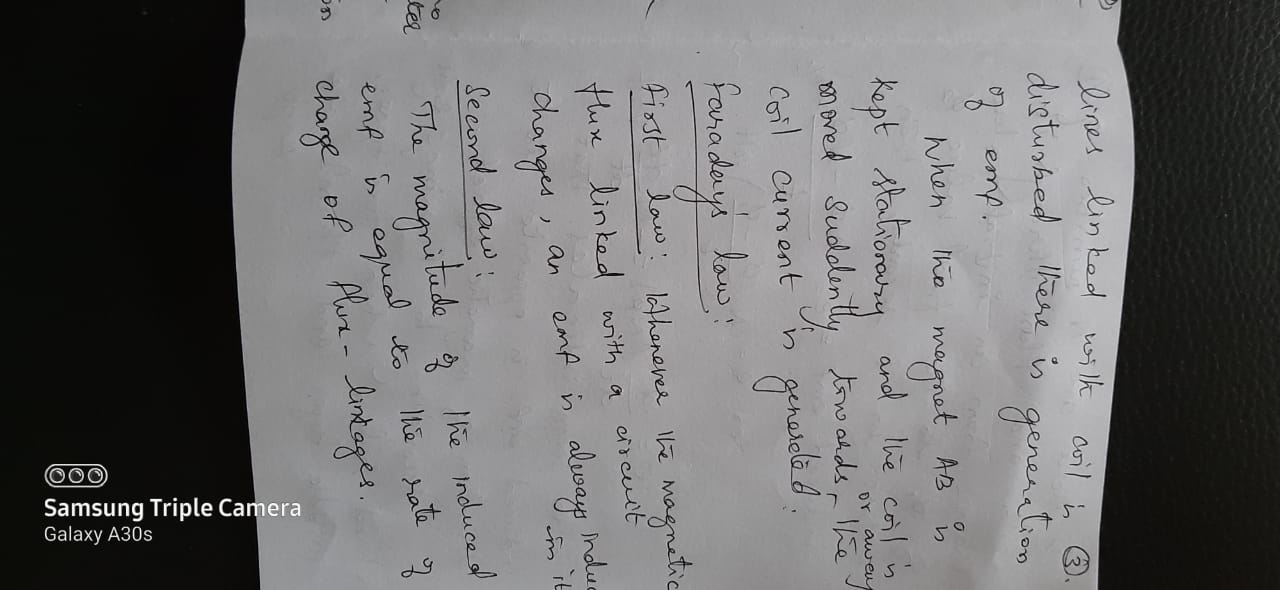 lines linked with coil is ③.
disturbed there is generation
of emf.
When the magnet AB is
kept stationary and the coil is
moved suddenly towards or away the
coil current is generated.
Faradays law:
First law: Whenever the magnetic
flux linked with a circuit
changes, an emf is always induc
in it
Second law:
The magnitude of the induced
emf is equal to the rate of
change of flux-linkages.
Samsung Triple Camera
Galaxy A30s